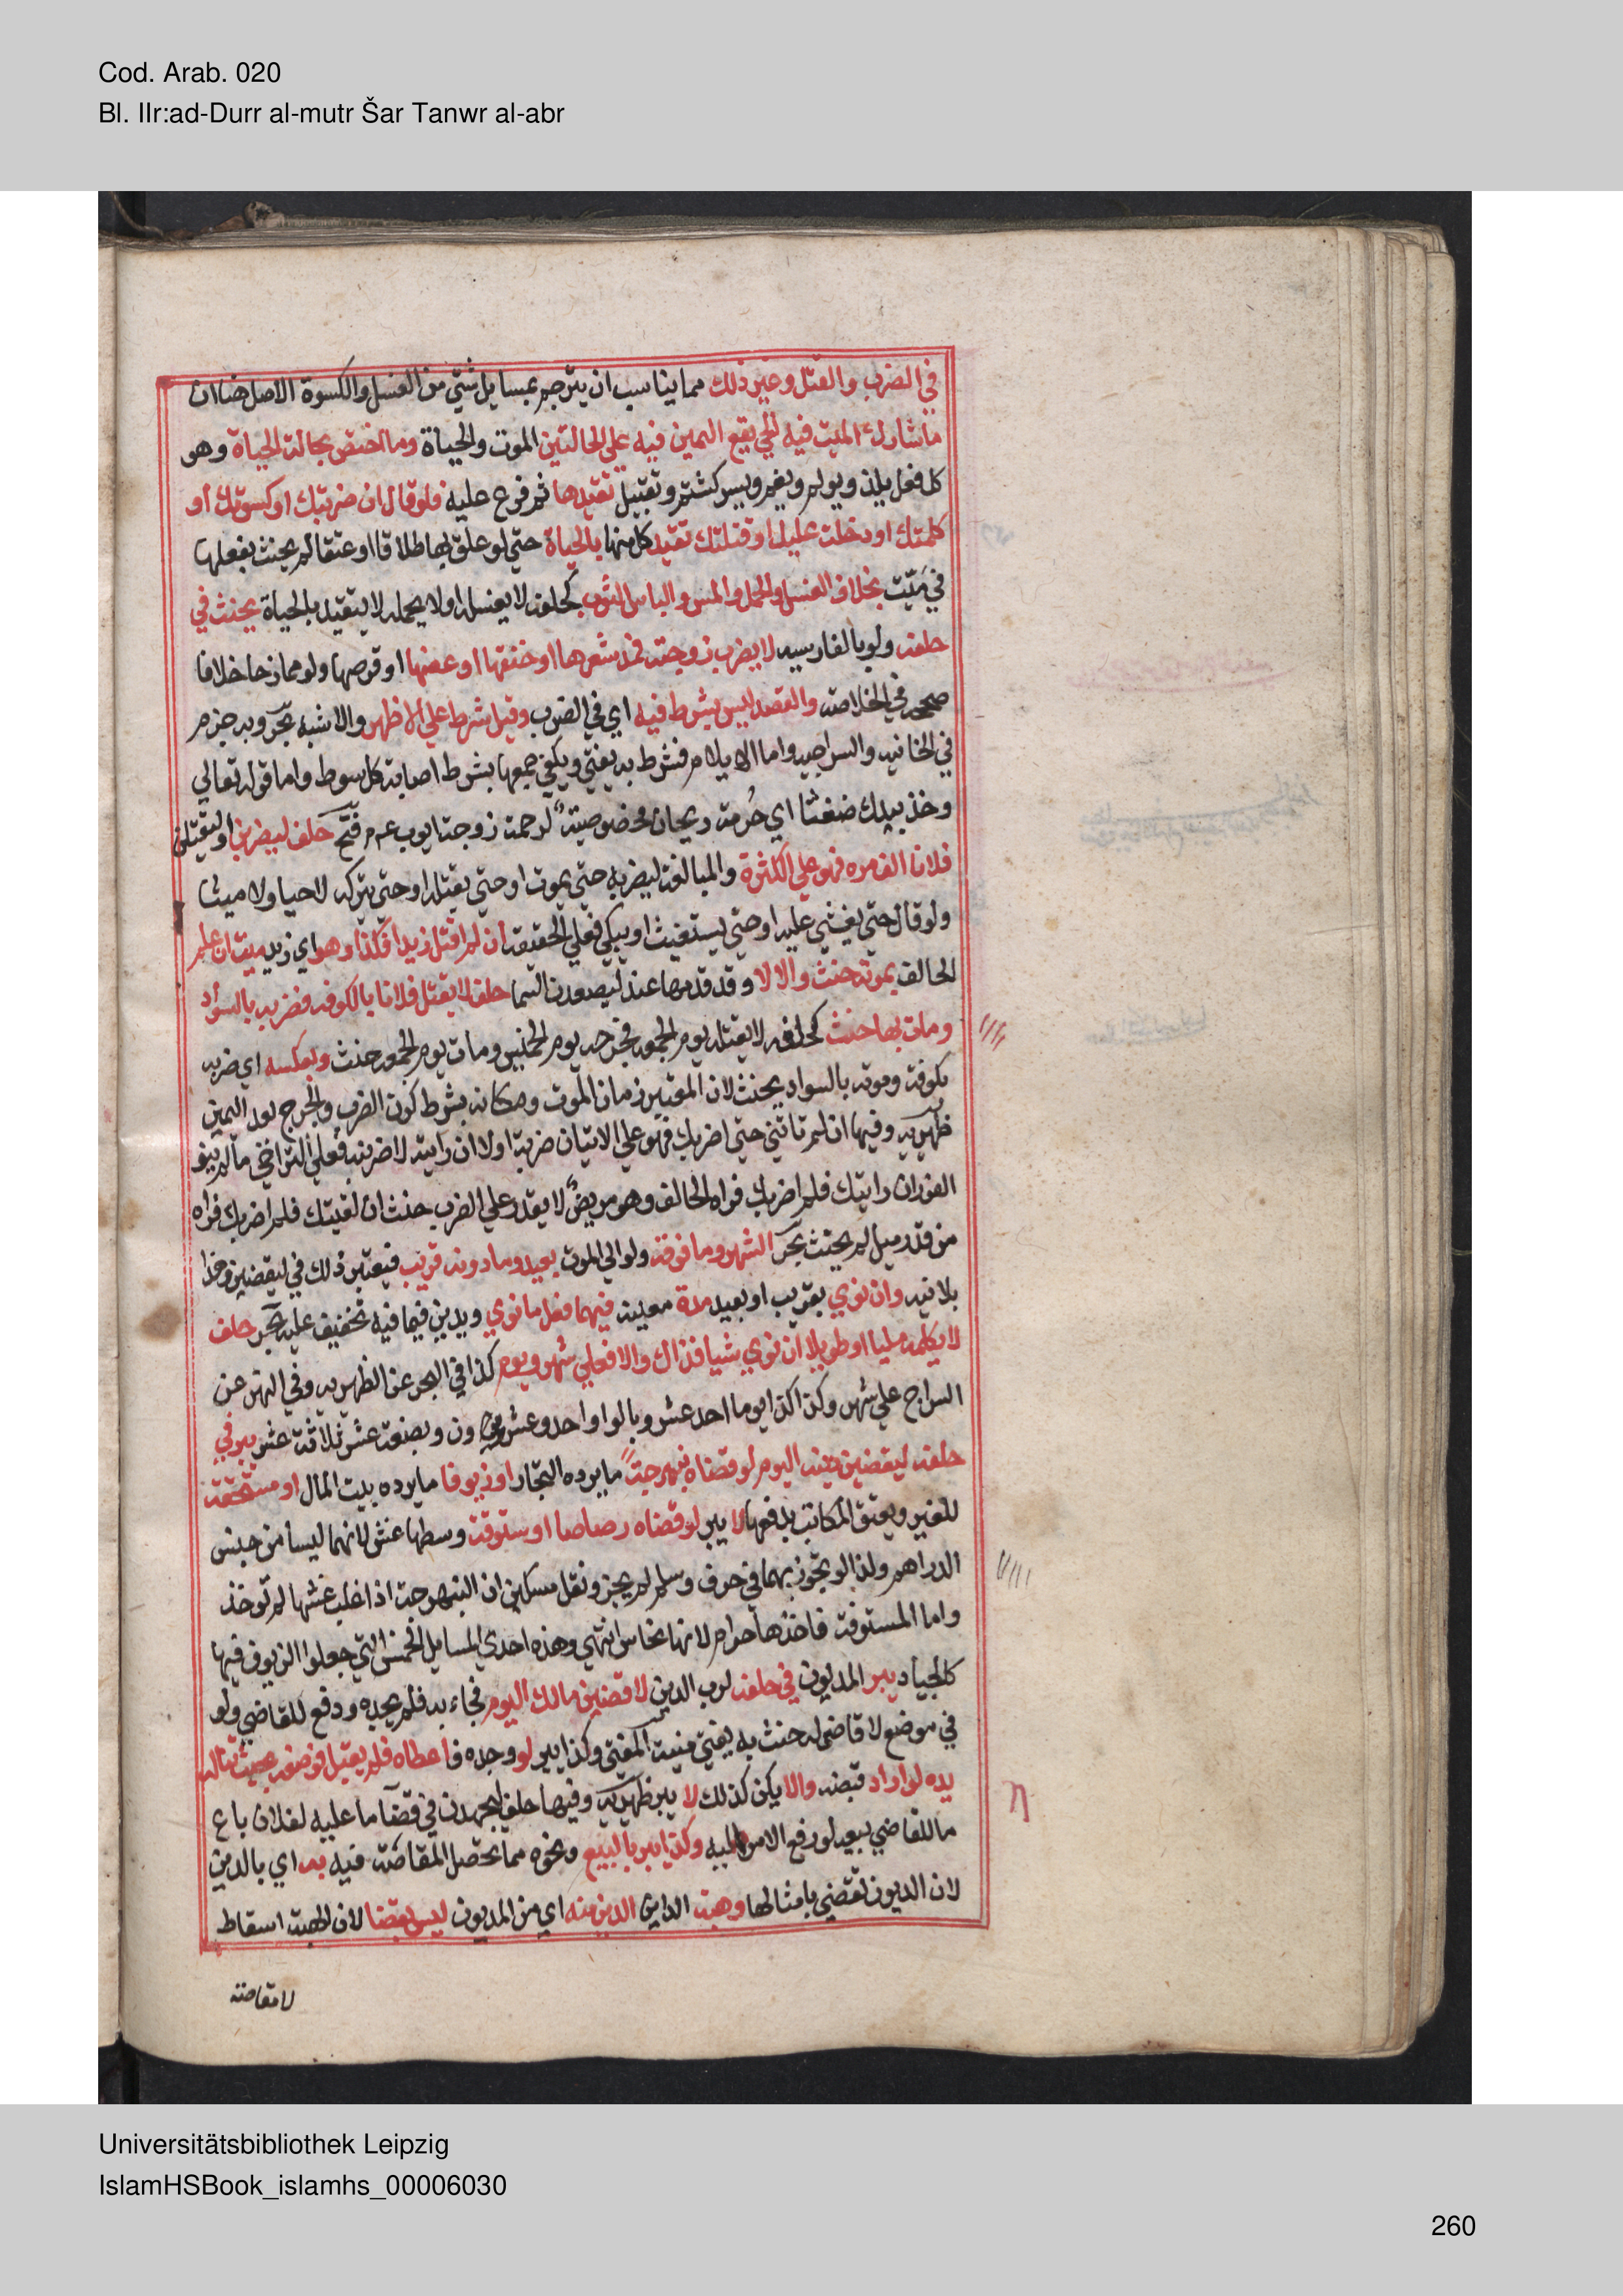 Cod. Arab. 020
Bl. IIr:ad-Durr al-mutr Šar Tanwr al-abr
في الضرب والقتل وغير ذلك مما يناسب ان يترجم بمسايل شتي من الغسل والكسوة الاصل هنا ان
ما شارك الميت فيه الحي يقع اليمين فيه علي الحالتين الموت والحياة وما اختص بحالة الحياة وهو
كل فعل يلذ ويولم ويغم ويسر كشتم وتقبيل تقيد بها ثم فرع عليه فلو قال ان ضربتك او كسوتك او
كلمتك او دخلت عليك او قتلتك تقيد كل منها بالحياة حتي لو علق بها طلاقا او عتقا لم يحنث بفعلها
في ميّت بخلاف الغسل والحمل والمس والباس الثوب كحلفه لا يغسله او لا يحمله لا يتقيد بالحياة يحنث في
حلفه ولو بالفارسيه لا يضرب زوجته فمد شعرها او خنقها او عضها او قرصها ولو ممازحا خلافا
صححه في الخلاصه والقصد ليس بشرط فيه اي في الضرب وقيل شرط علي الاظهر والاشبه بحر وبه جزم
في الخانيه والسراجيه واما الايلام فشرط به يفتي ويكفي جمعها بشرط اصابة كل سوط واما قوله تعالي
وخذ بيدك ضغثا اي حُزمة ريحان فخصوصية لرحمة زوجة ايوب عم فتح حلف ليضربن او ليقتلن
فلانا الف مره فهو علي الكثرة والمبالغة ليضربه حتي يموت او حتي يقتله او حتي يتركه لاحيا ولا ميتا
ولو قال حتي يغشي عليه او حتي يستغيث او يبكي فعلي الحقيقة ان لم اقتل زيدا فكذا وهو اي زيد ميت ان علم
الحالف بموته حنث والا لا وقد قدمها عند ليصعدن السما حلف لا يقتل فلانا بالكوفه فضربه بالسواد
ومات بها حنث كحلفه لا يقتله يوم الجمعه فجرحه يوم الخميس ومات يوم الجمعه حنث وبعكسه اي ضربه
بكوفة وموته بالسواد يحنث لان المعتبر زمان الموت ومكانه بشرط كون الضرب والجرح بعد اليمين
ظهيريه وفيها ان لم تاتني حتي اضربك فهو علي الاتيان ضربة اولا ان رايته لاضربنه فعلي التراخي ما لم ينو
الفور ان رايتك فلم اضربك فراه الحالف وهو مريض لا يقدر علي الضرب حنث ان لقيتك فلم اضربك فراه
من قدر ميل لم يحنث بحر الشهر وما فوقه ولو الي الموت بعيد وما دونه قريب فيعتبر ذلك في ليقضين
بلا نيه وان نوي بقريب او بعيد مدة معينه فيهما فعل ما نوي ويدين فيما فيه تخفيف عليه بحر حلف
لا يكلمه مليا او طويلا ان نوي شيا فذاك والا فعلي شهر ويوم كذا في البحر عن الظهيريه وفي النهر عن
السراج علي شهر وكذا كذا يوما احد عشر وبالواو احد وعشرون وبضعة عشر ثلاثة عشر يبر في
حلفه ليقضين دينه اليوم لو قضاه نبهرجة ما يرده التجار او زيوفا ما يرده بيت المال او مستحقة
للغير ويعتق المكاتب بدفعها لا يبر لو قضاه رصاصا او ستوقة وسطها غش لانهما ليسا من جنس
الدراهم ولذا لو تجوز بهما في صرف وسلم لم يجز ونقل مسكين ان النبهرجة اذا غلب غشها لم توخذ
واما المستوقة فاخذها حرام لانها نحاس انتهي وهذه احدي المسايل الخمس التي جعلوا الزيوف فيها
كالجياد يبر المديون في حلفه لرب الدين لاقضين مالك اليوم فجاء به فلم يجده ودفع للقاضي ولو
في موضع لا قاضي له حنث به يفتي منية المفتي وكذا يبر لو وجده فاعطاه فلم يقبل فوضعه بحيث تناله
يده لو اراد قبضه والا يكن كذلك لا يبر ظهيريه وفيها حلف ليجهدن في قضا ما عليه لفلان باع
ما للقاضي بيعه لو رفع الامر اليه وكذا يبر بالبيع ونحوه مما تحصل المقاصّة فيه به اي بالدين
لان الديون تقضي بامثالها وهبة الداين الدين منه اي من المديون ليس بقضا لان الهبة اسقاط
لا مقاصة
Universitätsbibliothek Leipzig
IslamHSBook_islamhs_00006030
260